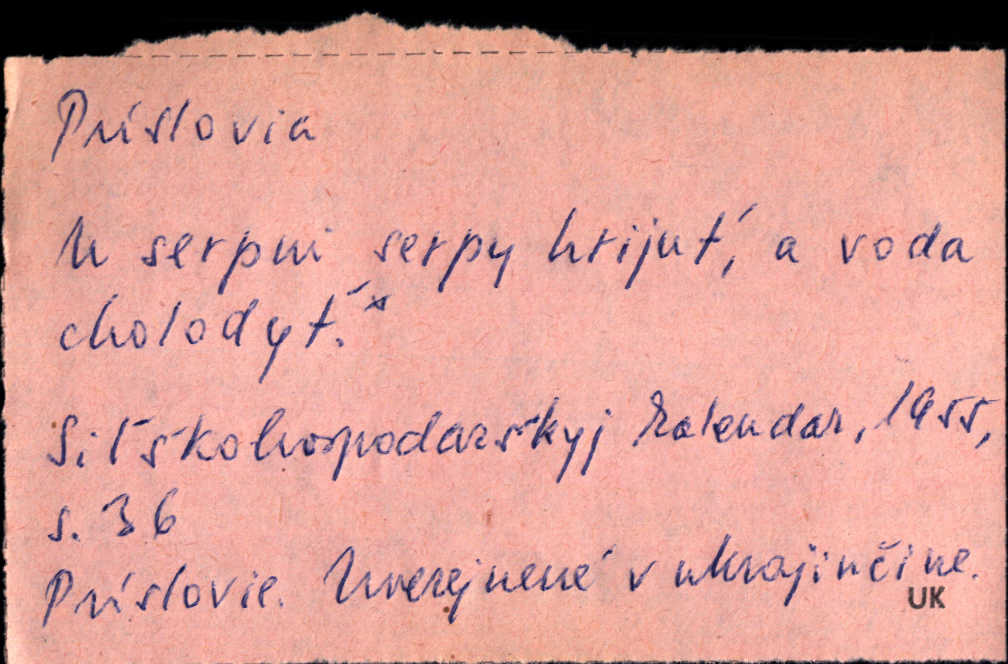 Príslovia
U serpni serpy hrijuť, a voda
cholodyť.*
Siľśkohospodarśkyj kalendar, 1955,
s. 36
Príslovie. Uverejnené v ukrajinčine.
UK